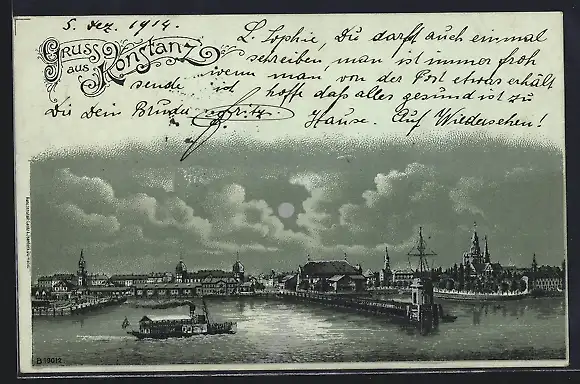 5. Dez. 1914.
Gruss
aus
Konstanz
L. Sophie, Du darfst auch einmal
schreiben, man ist immer froh
wenn man von der Post etwas erhält
sende ist hoffe daß alles gesund ist zu
Die Dein Bruder Fritz Hause. Auf Wiedersehen!
B 19012